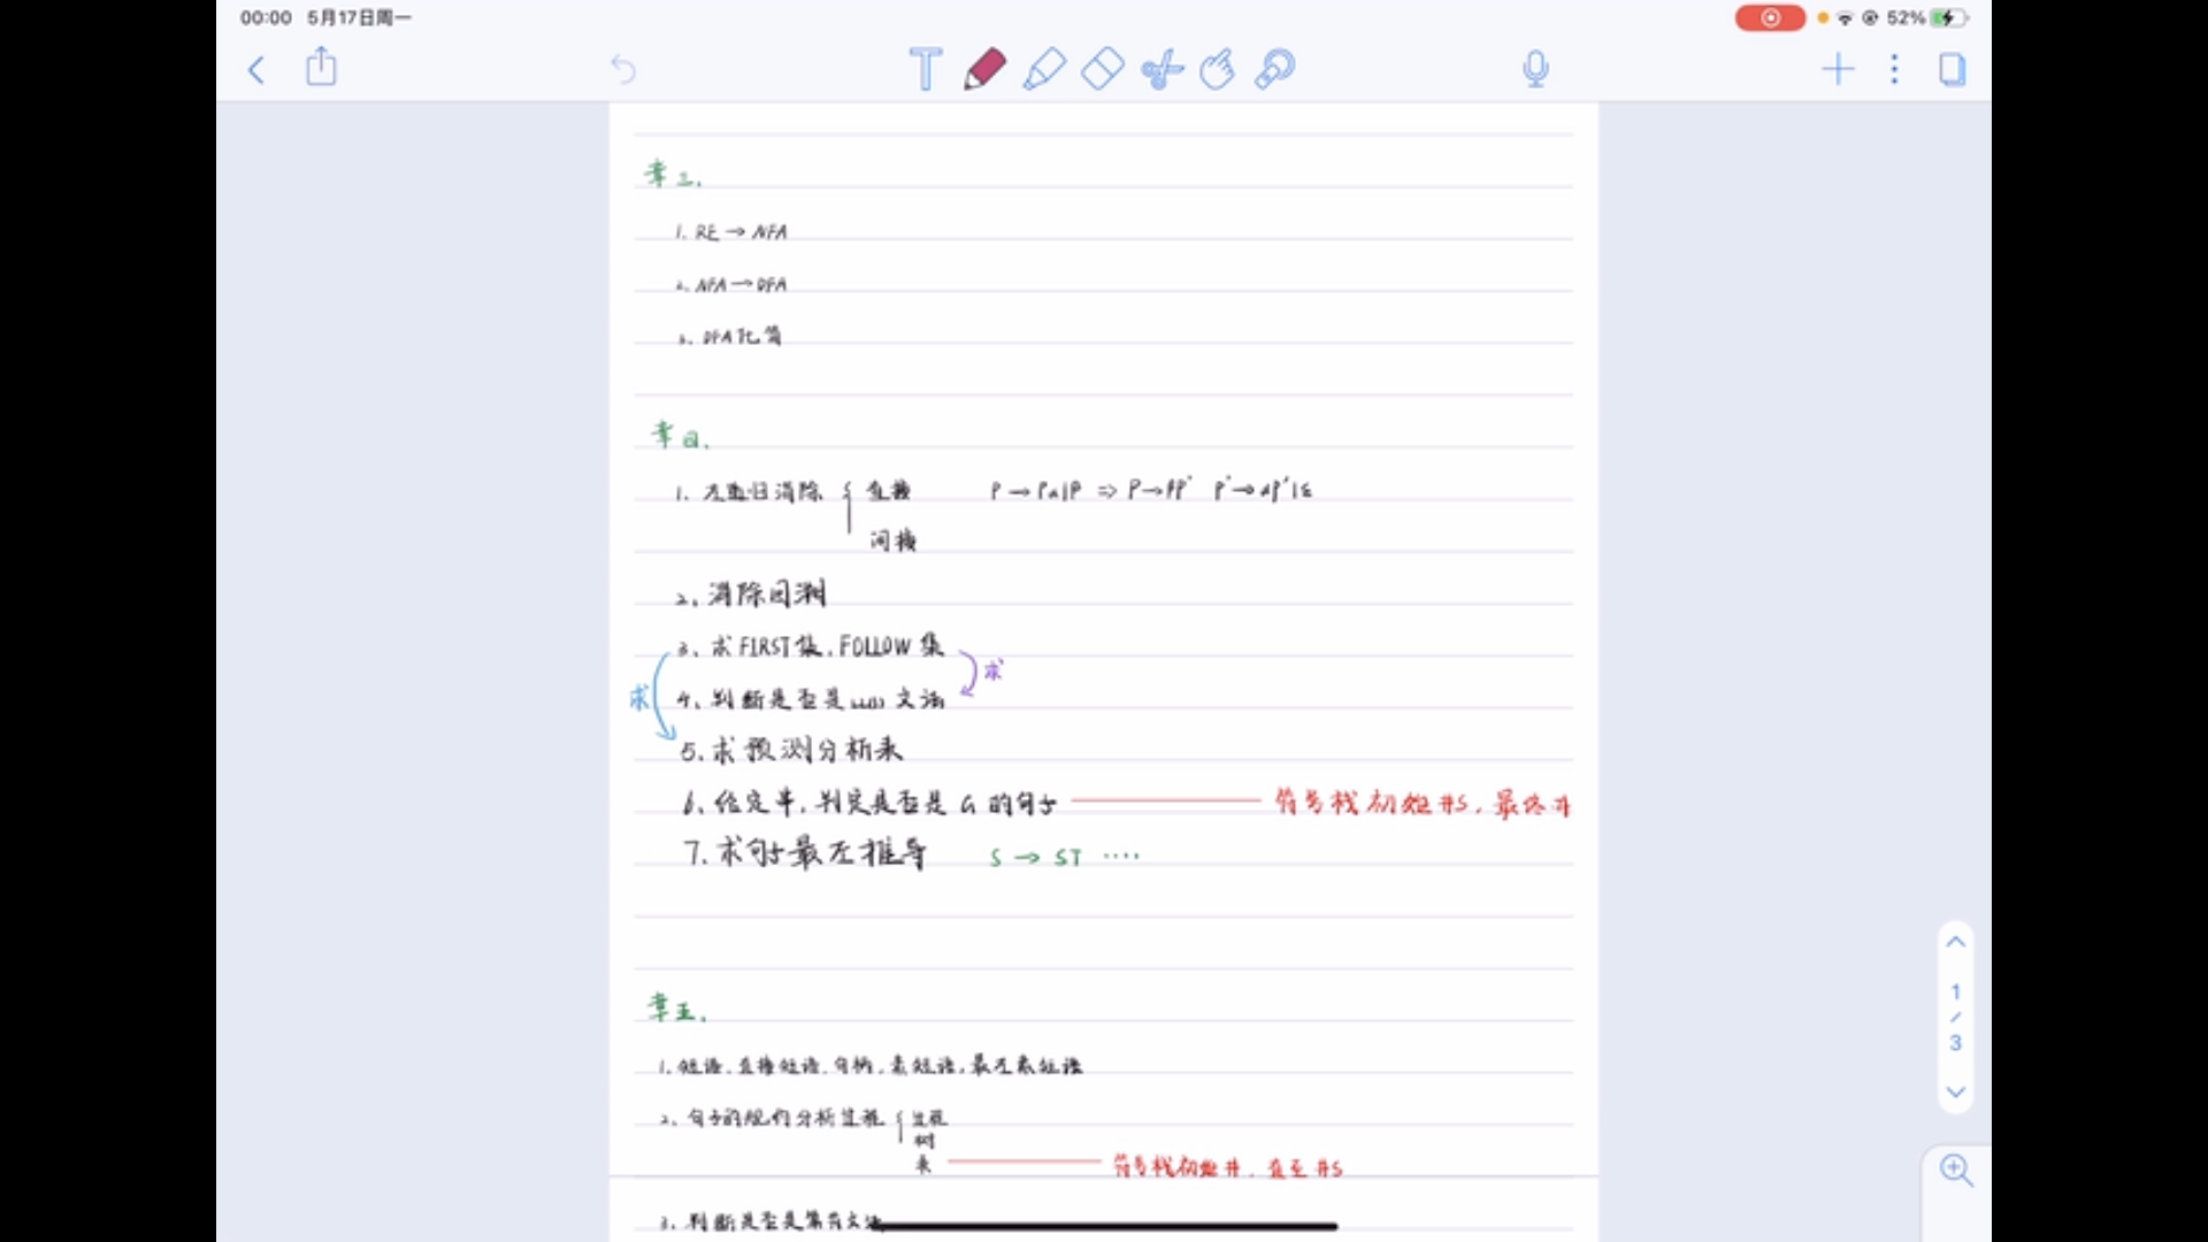 00:00 5月17日周一
52%
章三.
1. RE → NFA
2. NFA → DFA
3. DFA化简
章四.
1. 左递归消除 { 直接 P → Pα|β ⇒ P → βP' P' → αP'|ε
间接
2. 消除回溯
3. 求FIRST集, FOLLOW集
求
求
4. 判断是否是LL(1)文法
5. 求预测分析表
6. 给定串, 判定是否是G的句子 符号栈初始#S, 最终#
7. 求句子最左推导 S → ST ····
章五.
1. 短语, 直接短语, 句柄, 素短语, 最左素短语
2. 句子的规约分析过程 { 过程
树
表 符号栈初始#, 直至#S
3. 判断是否是算符文法
1
/
3